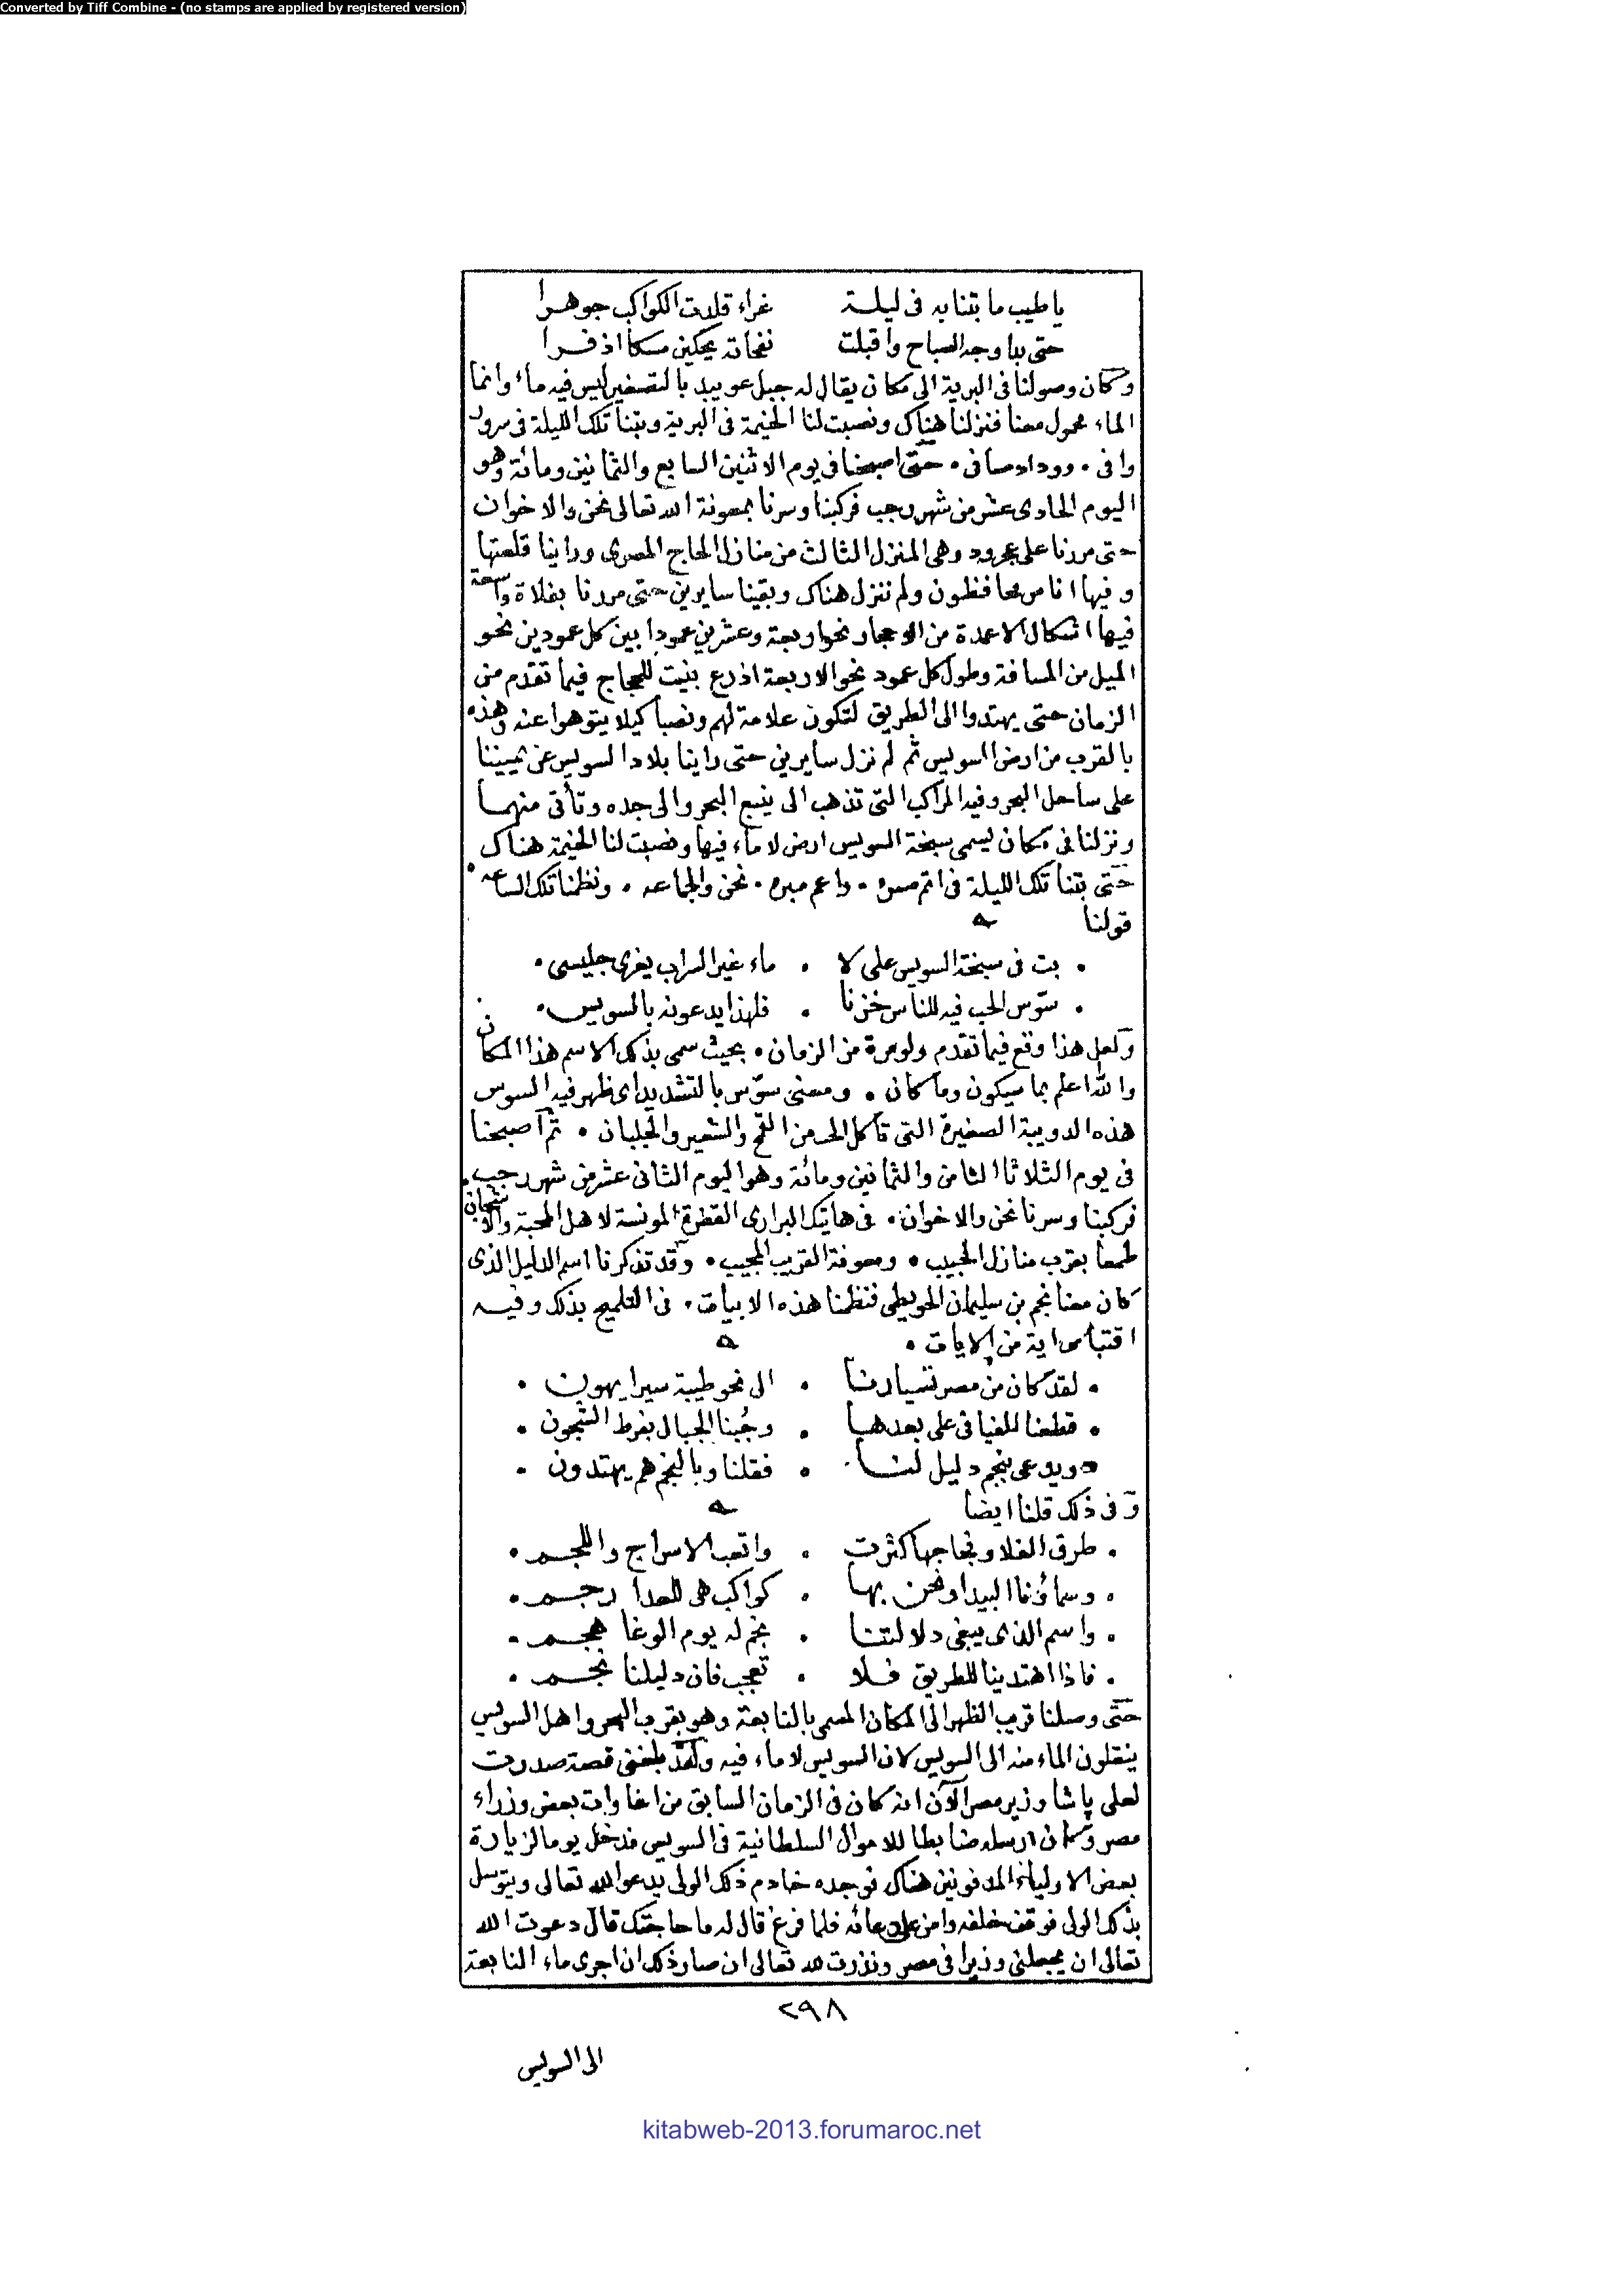 Converted by Tiff Combine - (no stamps are applied by registered version)
يا طيب ما بتنا به فى ليلة غراء قلدت الكواكب جوهرا
حتى بدا وجه الصباح واقبلت نفحاته يحكين مسكا اذفرا
وكان وصولنا فى البرية الى مكان يقال له جبل عويبد بالتصغير ليس فيه ماء وانما
الماء محمول معنا فنزلنا هناك ونصبت لنا الخيمة فى البرية وبتنا تلك الليلة فى سرور
وافى . ووداد صافى . حتى اصبحنا فى يوم الاثنين السابع والثمانين ومائة وهو
اليوم الحادى عشر من شهر رجب فركبنا وسرنا بمعونة الله تعالى نحن والاخوان
حتى مررنا على عجرود وهى المنزل الثالث من منازل الحاج المصرى وراينا قلعتها
وفيها اناس محافظون ولم ننزل هناك وبقينا سايرين حتى مررنا بفلاة واسعة
فيها اشكال الاعمدة من الاحجار نحو اربعة وعشرين عمودا بين كل عمودين نحو
الميل من المسافة وطول كل عمود نحو الاربعة اذرع بنيت للحجاج فيما تقدم من
الزمان حتى يهتدوا الى الطريق لتكون علامة لهم ونصبا كيلا يتوهوا عنه وهذه
بالقرب من ارض السويس ثم لم نزل سايرين حتى راينا بلاد السويس عن يميننا
على ساحل البحر وفيه المراكب التى تذهب الى ينبع البحر والى جده وتأتى منهما
ونزلنا فى مكان يسمى سبخة السويس ارض لا ماء فيها ونصبت لنا الخيمة هناك
حتى بتنا تلك الليلة فى اتم مسره . واعم مبره . نحن والجماعه . ونظمنا تلك الساعه .
قولنا
. بت فى سبخة السويس على لا . ماء غير السراب يغرى جليسى .
. سوّس الحب فيه للناس خزنا . فلهذا يدعونه بالسويس .
ولعل هذا وقع فيما تقدم ولو مرة من الزمان . بحيث سمى بذلك الاسم هذا المكان
والله اعلم بما سيكون وما كان . ومعنى سوّس بالتشديد اى ظهر فيه السوس
هذه الدويبة الصغيرة التى تأكل الحب من القمح والشعير والجلبان . ثم اصبحنا
فى يوم الثلاثا الثامن والثمانين ومائة وهو اليوم الثانى عشر من شهر رجب .
فركبنا وسرنا نحن والاخوان . فى هاتيك البرارى القفرة المونسة لاهل المحبة والاشجان
طمعا بقرب منازل الحبيب . ومعونة القريب المجيب . وقد تذكرنا اسم الدليل الذى
كان معنا نجم بن سليمان الحويطى فنظمنا هذه الابيات . فى التلميح بذلك وفيه
اقتباس اية من الايات .
. لقد كان من مصر تسيارنا . الى نحو طيبة سيرا يهون .
. قطعنا الفيافى على بعدها . وجُبنا الجبال بفرط الشجون .
. ويدعى بنجم دليل لنا . فقلنا وبالنجم هم يهتدون .
وفى ذلك قلنا ايضا
. طرق الفلا وفجاجها كثرت . واتعب الاسراج واللجم .
. وسماؤنا البيدا ونحن بها . كواكب هى للعدا رجم .
. واسم الذى يبغى دلالتنا . نجم له يوم الوغا هجم .
. فاذا اهتدينا للطريق فلا . تعجب فان دليلنا نجم .
حتى وصلنا قريب الظهر الى المكان المسمى بالنابعة وهو بقرب البحر واهل السويس
ينقلون الماء منه الى السويس لان السويس لا ماء فيه ولقد بلغنى قصة صدرت
لعلى پاشا وزير مصر الآن انه كان فى الزمان السابق من اغاوات بعض وزراء
مصر وكان ارسله ضابطا للاموال السلطانية فى السويس فدخل يوما لزيارة
بعض الاولياء المدفونين هناك فوجده خادم ذلك الولى يدعو الله تعالى ويتوسل
بذلك الولى فوقف خلفه وامن على دعائه فلما فرغ قال له ما حاجتك قال دعوت الله
تعالى ان يجعلنى وزيرا فى مصر ونذرت لله تعالى ان صار ذلك ان اجرى ماء النابعة
٢٩٨
الى السويس
kitabweb-2013.forumaroc.net